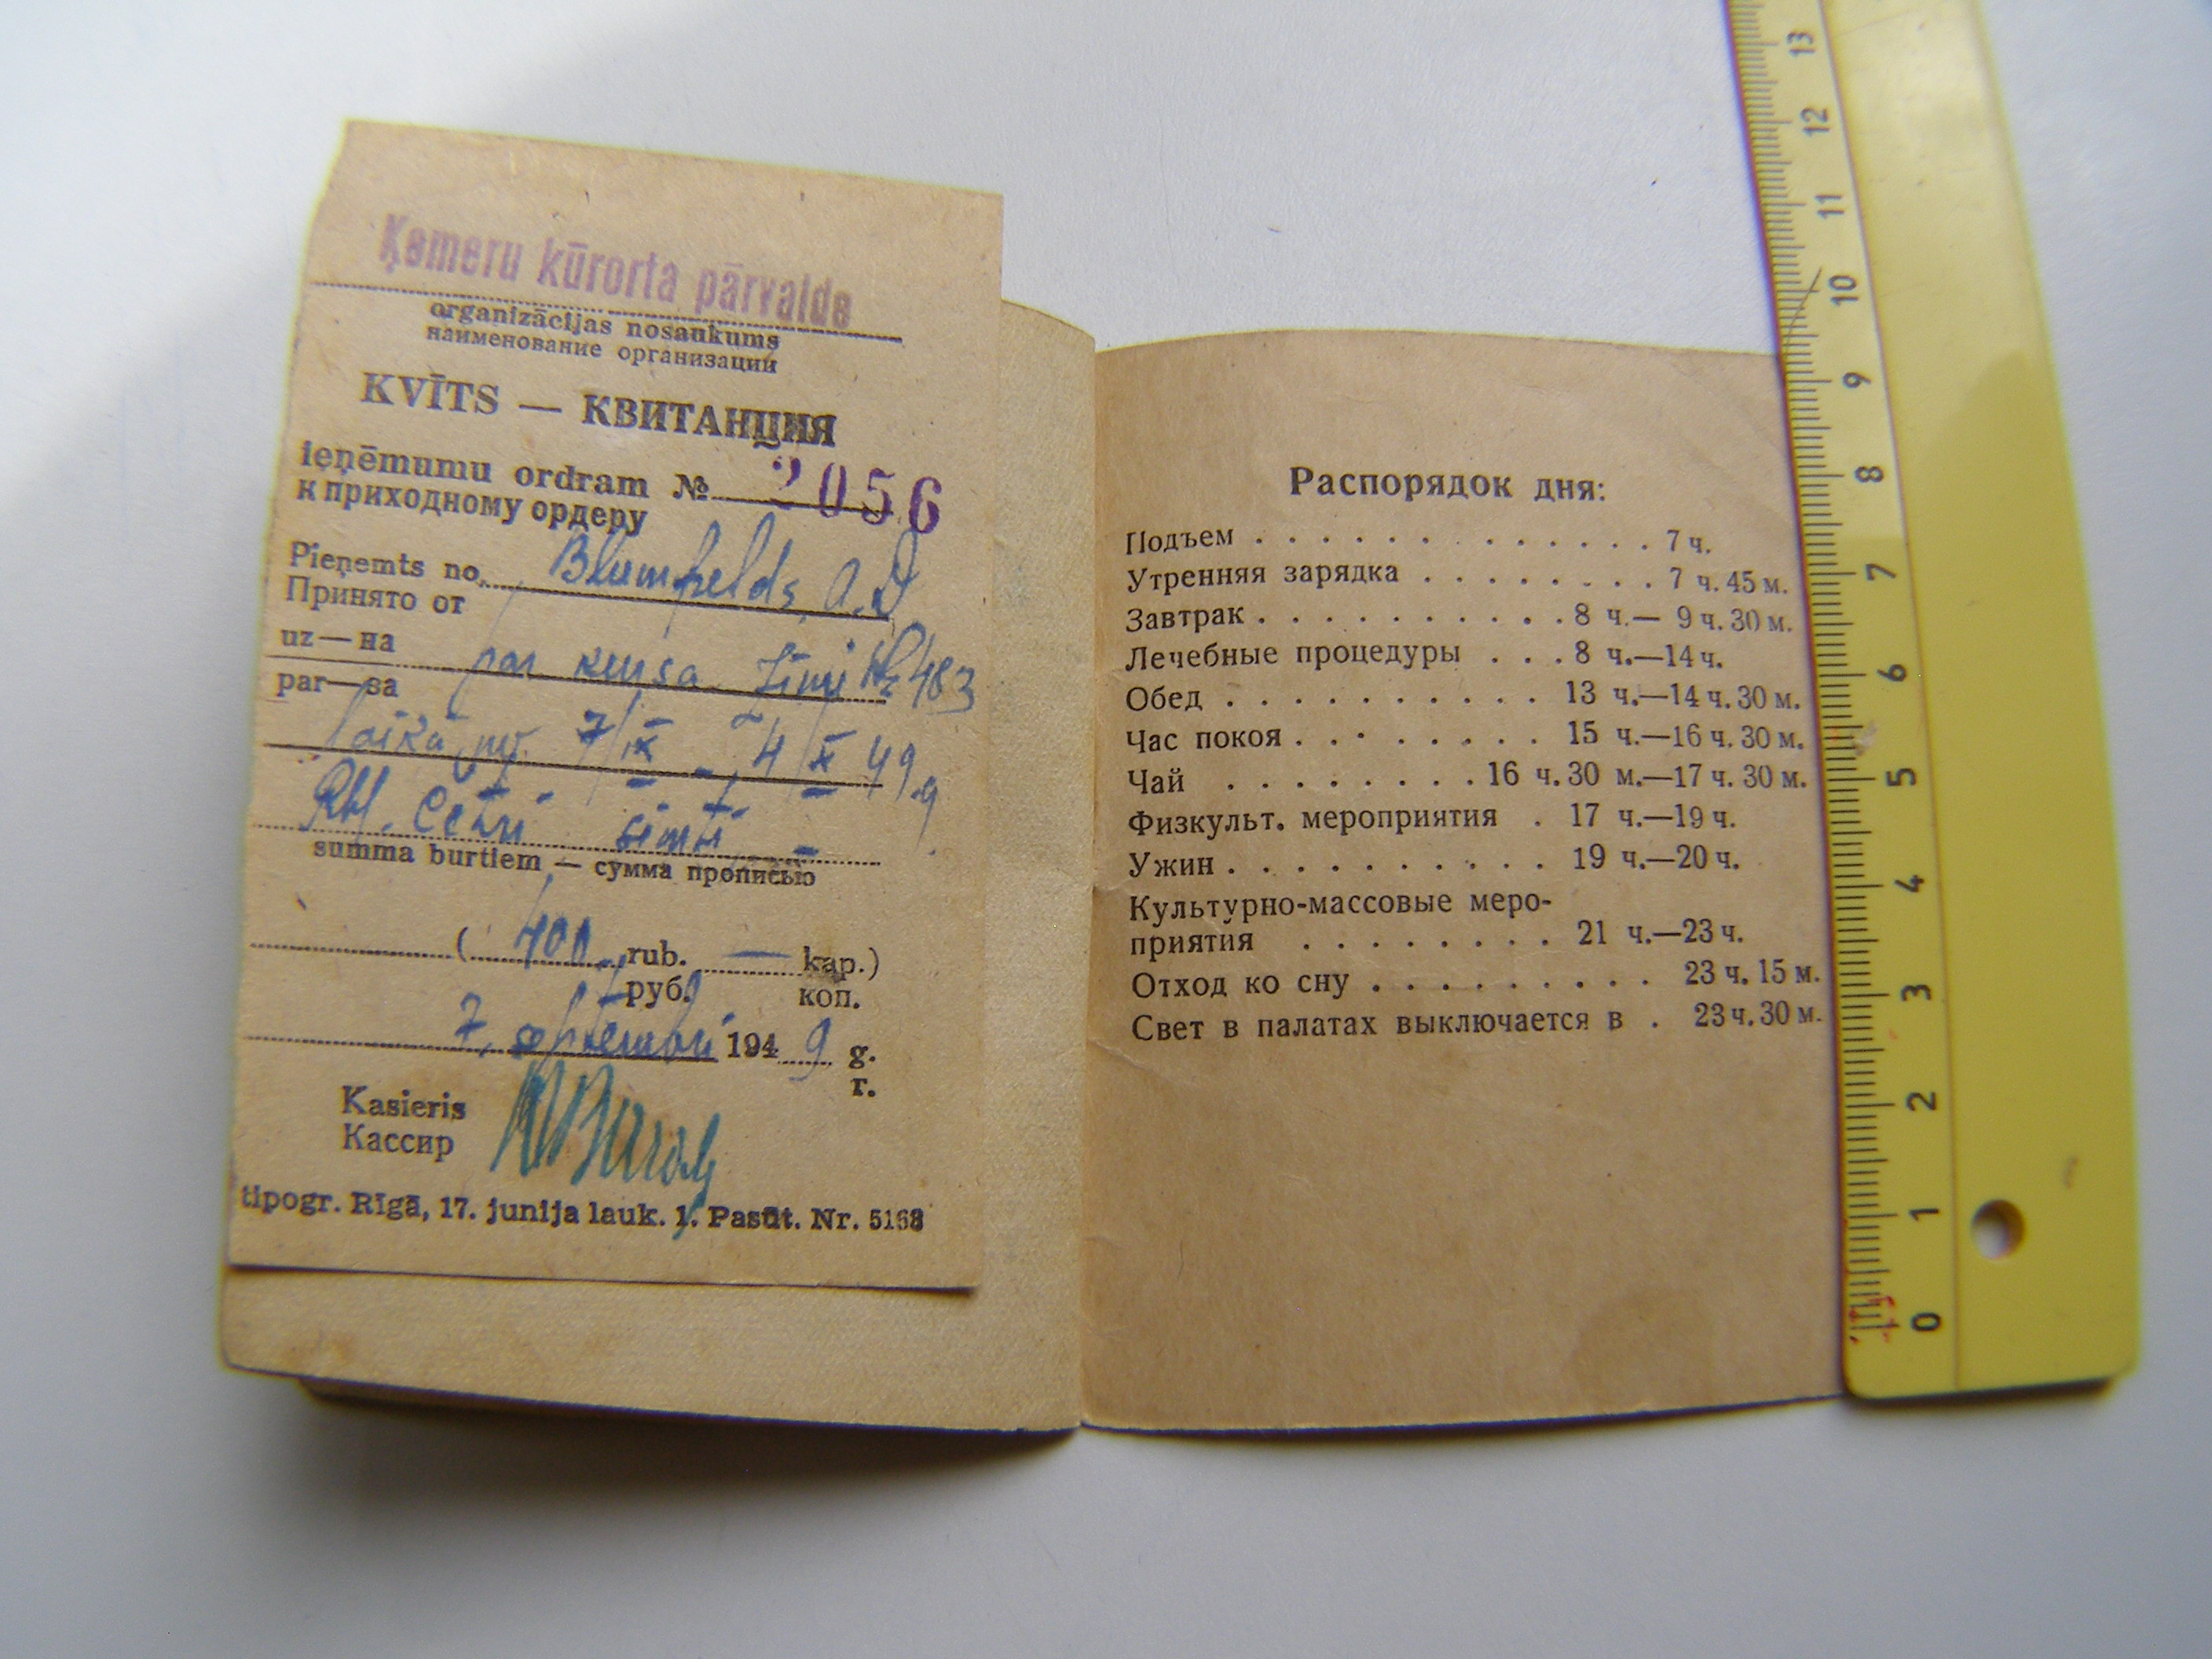 Ķemeru kūrorta pārvalde
organizācijas nosaukums
наименование организации
KVĪTS — КВИТАНЦИЯ
ieņēmumu ordram № 2056
к приходному ордеру
Pieņemts no Blumfelds, A. D
Принято от
uz—на par kursa zīmi № 483
par—за
laikā no 7/IX - 4/X 49 g.
Rbl. Četri simti —
summa burtiem — сумма прописью
( 400 rub. — kap.)
руб. коп.
7. septembrī 1949 g.
г.
Kasieris
Кассир
tipogr. Rīgā, 17. junija lauk. 1. Pasūt. Nr. 5168
Распорядок дня:
Подъем . . . . . . . . . . . . . 7 ч.
Утренняя зарядка . . . . . . . . . 7 ч. 45 м.
Завтрак . . . . . . . . . . . 8 ч.— 9 ч. 30 м.
Лечебные процедуры . . . 8 ч.—14 ч.
Обед . . . . . . . . . . . 13 ч.—14 ч. 30 м.
Час покоя . . . . . . . . . 15 ч.—16 ч. 30 м.
Чай . . . . . . . . 16 ч. 30 м.—17 ч. 30 м.
Физкульт. мероприятия . 17 ч.—19 ч.
Ужин . . . . . . . . . . . 19 ч.—20 ч.
Культурно-массовые меро-
приятия . . . . . . . . 21 ч.—23 ч.
Отход ко сну . . . . . . . . . 23 ч. 15 м.
Свет в палатах выключается в . 23 ч. 30 м.
13
12
11
10
9
8
7
6
5
4
3
2
1
0